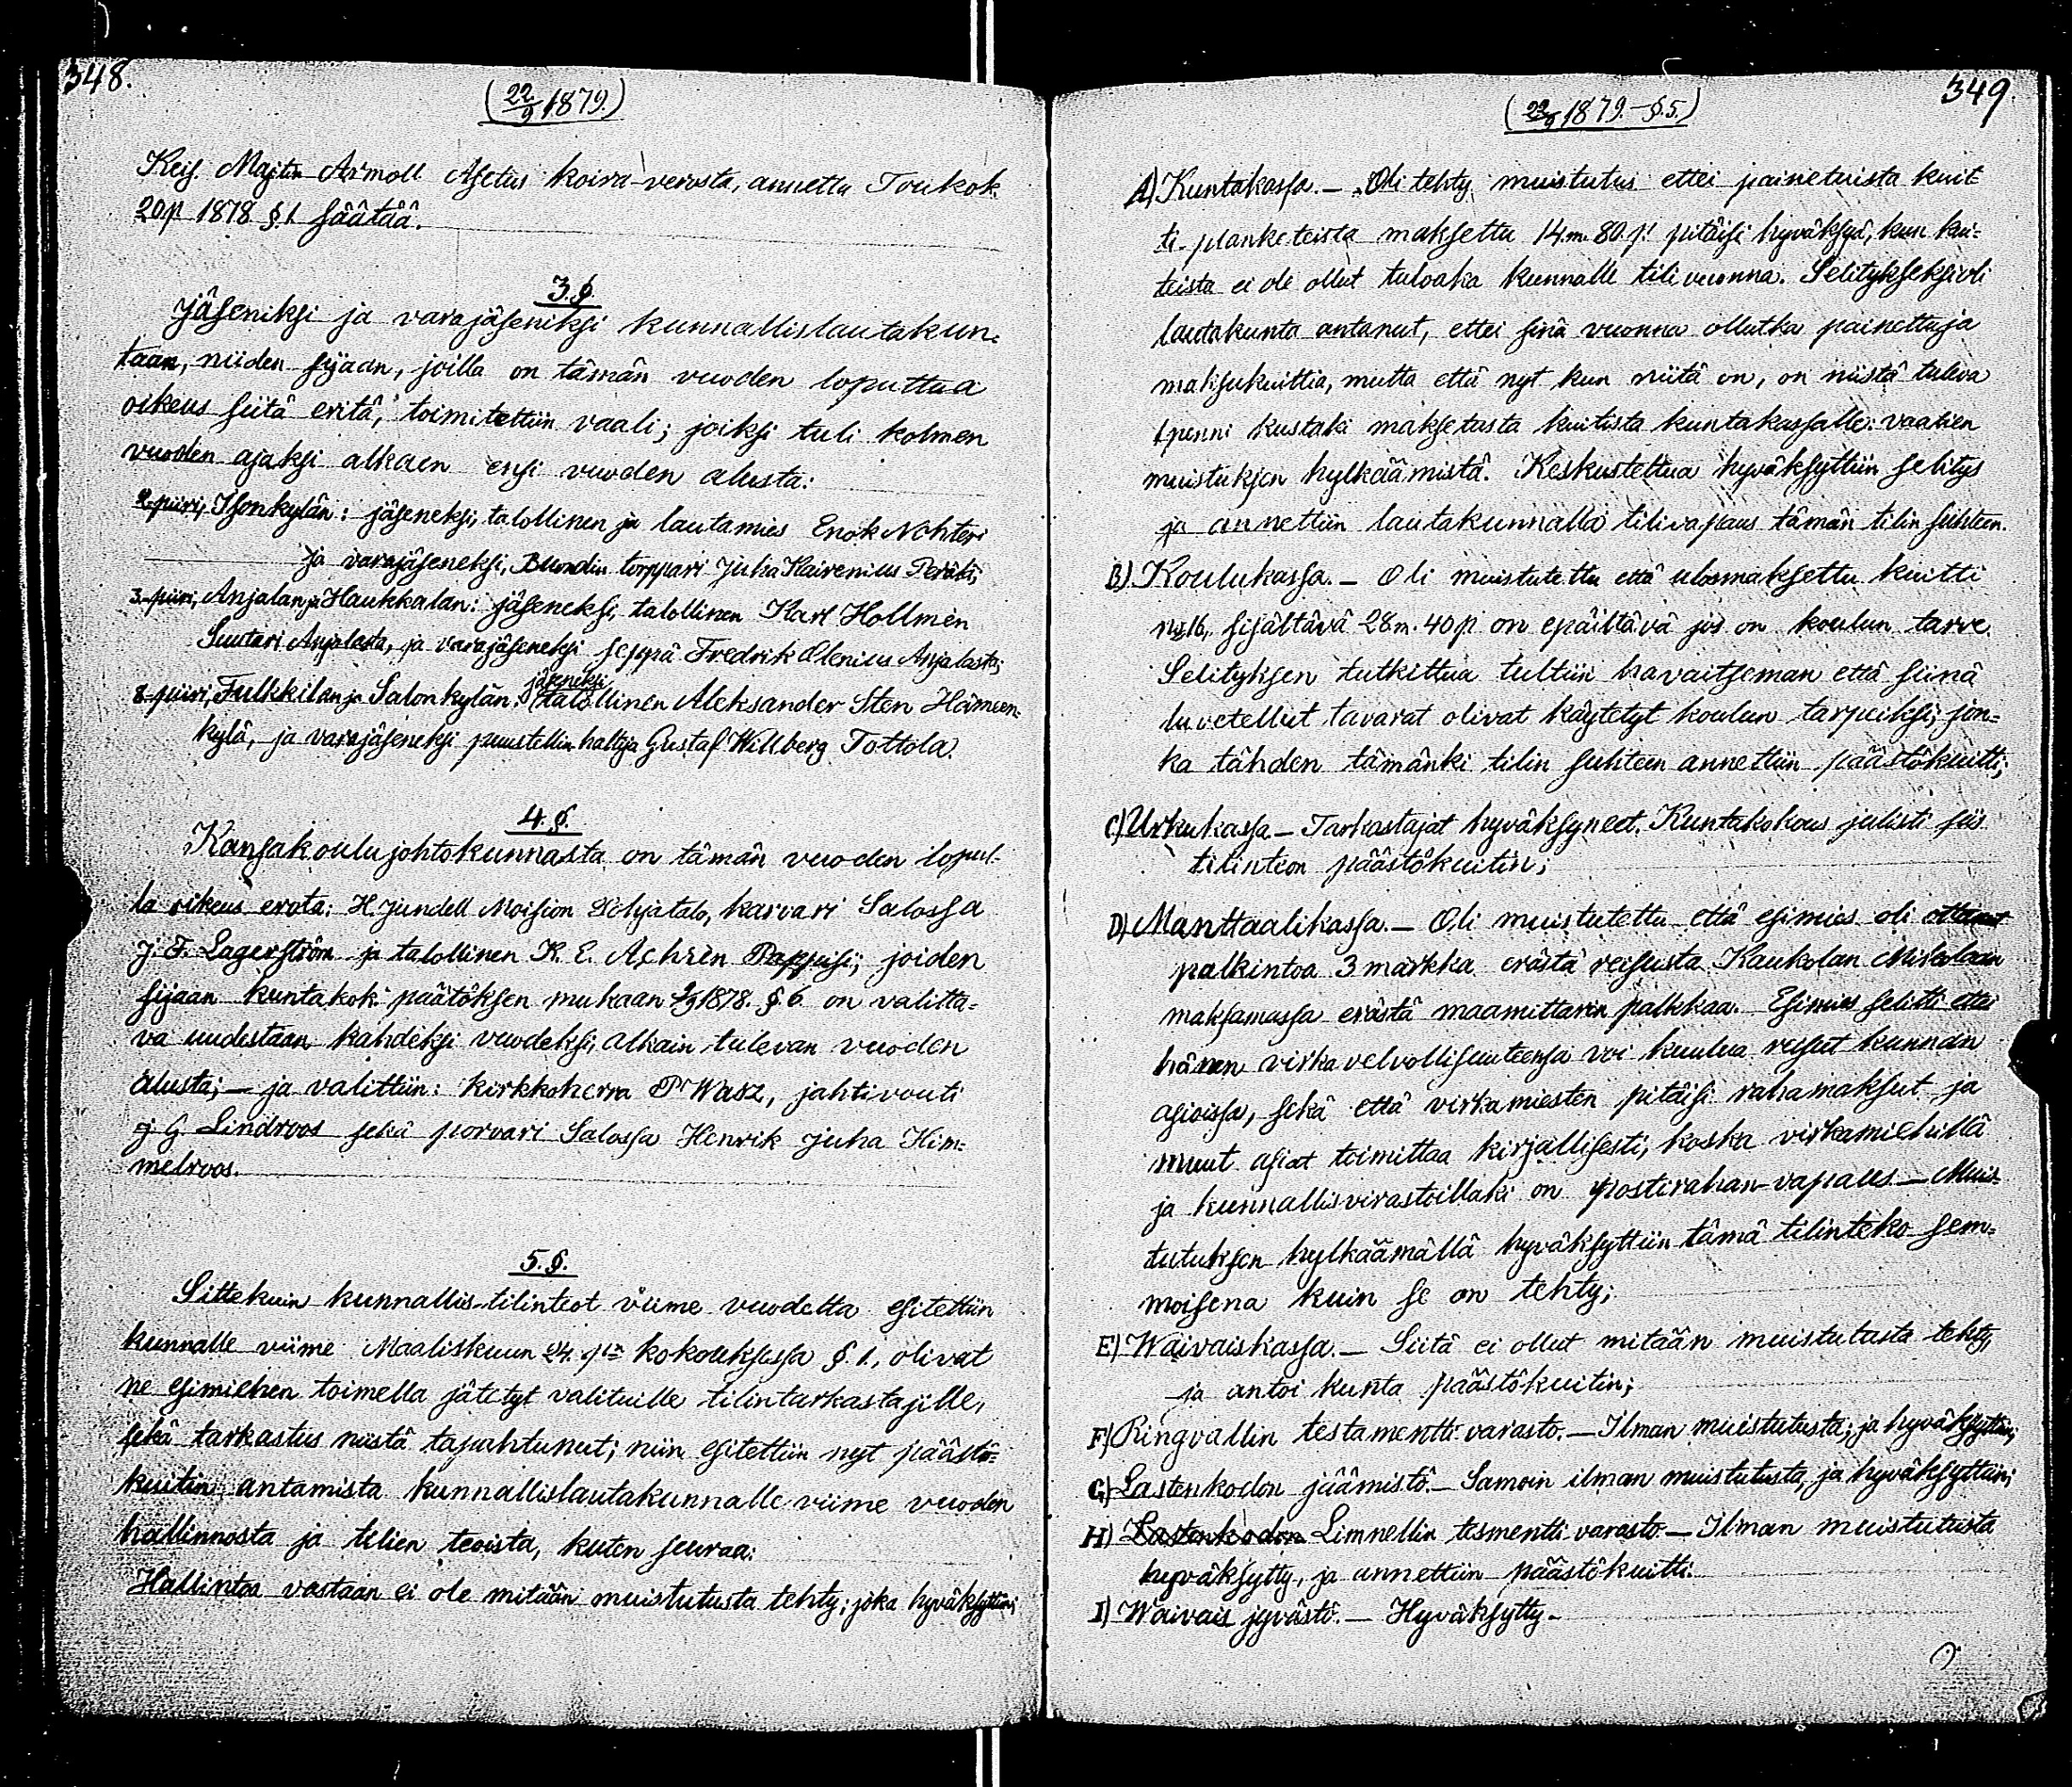 348.
(22/9 1879.)
Keis. Majtin Armoll. Asetus koira-verosta, annettu Toukok.
20p 1878 §.1. säätää.
3.§.
Jäseniksi ja varajäseniksi kunnallislautakun-
taan, niiden sijaan, joilla on tämän vuoden loputtua
oikeus siitä eritä, toimitettiin vaali; joiksi tuli kolmen
vuoden ajaksi alkaen ensi vuoden alusta:
2-piiri, Isonkylän: jäseneksi, talollinen ja lautamies Enok Nohteri
ja varajäseneksi, torppari Juha Kairenius Perälä;
3-piiri, Anjalan ja Haukkalan: jäseneksi, talollinen Karl Hollmén
Suutari Anjalasta, ja varajäseneksi seppä Fredrik Olenius Anjalasta;
8-piiri, Fulkkilan ja Salonkylän: jäseneksi talollinen Aleksander Sten Hämeen-
kylä, ja varajäseneksi puustellin haltija Gustaf Willberg Tottola.
4.§.
Kansakoulujohtokunnasta on tämän vuoden lopul-
la oikeus erota: H. Jundell Moision Pohjatalo, karvari Salossa
J. F. Lagerström ja talollinen K. E. Achrén Pappisi; joiden
sijaan kuntakok. päätöksen mukaan 1878. §.6. on valitta-
va uudestaan kahdeksi vuodeksi, alkain tulevan vuoden
alusta; — ja valittiin: kirkkoherra Pr Wasz, jahtivouti
J. G. Lindroos sekä porvari Salossa Henrik Juha Him-
melroos.
5.§.
Sittekuin kunnallis-tilinteot viime vuodelta esitettiin
kunnalle viime Maaliskuun 24. pn kokouksessa §.1., olivat
ne esimiehen toimella jätetyt valituille tilintarkastajille,
sekä tarkastus niistä tapahtunut; niin esitettiin nyt päästö-
kuitin antamista kunnallislautakunnalle viime vuoden
hallinnosta ja tilien teoista, kuten seuraa:
Hallintoa vastaan ei ole mitään muistutusta tehty; joka hyväksyttiin;
349
(22/9 1879. — §.5.)
A) Kuntakassa. — Oli tehty muistutus ettei painetuista kuit-
ti-planketeista maksettu 14.m. 80.p. pitäisi hyväksyä, kun kui-
teista ei ole ollut tuloaka kunnalle tili vuonna. Selitykseksi oli
lautakunta antanut, ettei sinä vuonna ollutka painettuja
maksukuittia, mutta että nyt kun niitä on, on niistä tuleva
1 penni kustaki maksetusta kuitista kuntakassalle: vaatien
muistuksen hylkäämistä. Keskusteltua hyväksyttiin selitys
ja annettiin lautakunnalla tilivapaus tämän tilin suhteen.
B) Koulukassa. — Oli muistutettu että ulosmaksettu kuitti
No 16, sisältävä 28m. 40p on epäiltävä jos on koulun tarve.
Selityksen tutkittua tultiin havaitseman että siinä
luvetellut tavarat olivat käytetyt koulun tarpeiksi; jon-
ka tähden tämänki tilin suhteen annettiin päästökuitti;
C) Urkukassa — Tarkastajat hyväksyneet. Kuntakokous julisti siis
tilinteon päästökuitin;
D) Manttaalikassa. — Oli muistutettu että esimies oli ottanut
palkintoa 3 markka erästä reisusta Kaukolan Mikolaan
maksamassa erästä maamittarin palkkaa. Esimies selitti ettei
hänen virka velvollisuuteensa voi kuulua reisut kunnan
asioissa, sekä että virkamiesten pitäisi rahamaksut ja
muut asiat toimittaa kirjallisesti, koska virkamiehillä
ja kunnallisvirastoillaki on postirahan-vapaus — Muis-
tutuksen hylkäämällä hyväksyttiin tämä tilinteko sem-
moisena kuin se on tehty;
E) Waivaiskassa. — Siitä ei ollut mitään muistutusta tehty,
ja antoi kunta päästökuitin;
F) Ringvallin testamentti varasto. — Ilman muistutusta; ja hyväksyttiin;
G) Lastenkodon jäämistö. — Samoin ilman muistutusta, ja hyväksyttiin;
H) Lastenkodon Limnellin tesmentti varasto. — Ilman muistutusta
hyväksytty, ja annettiin päästökuitti.
I) Waivais jyvästö. — Hyväksytty —